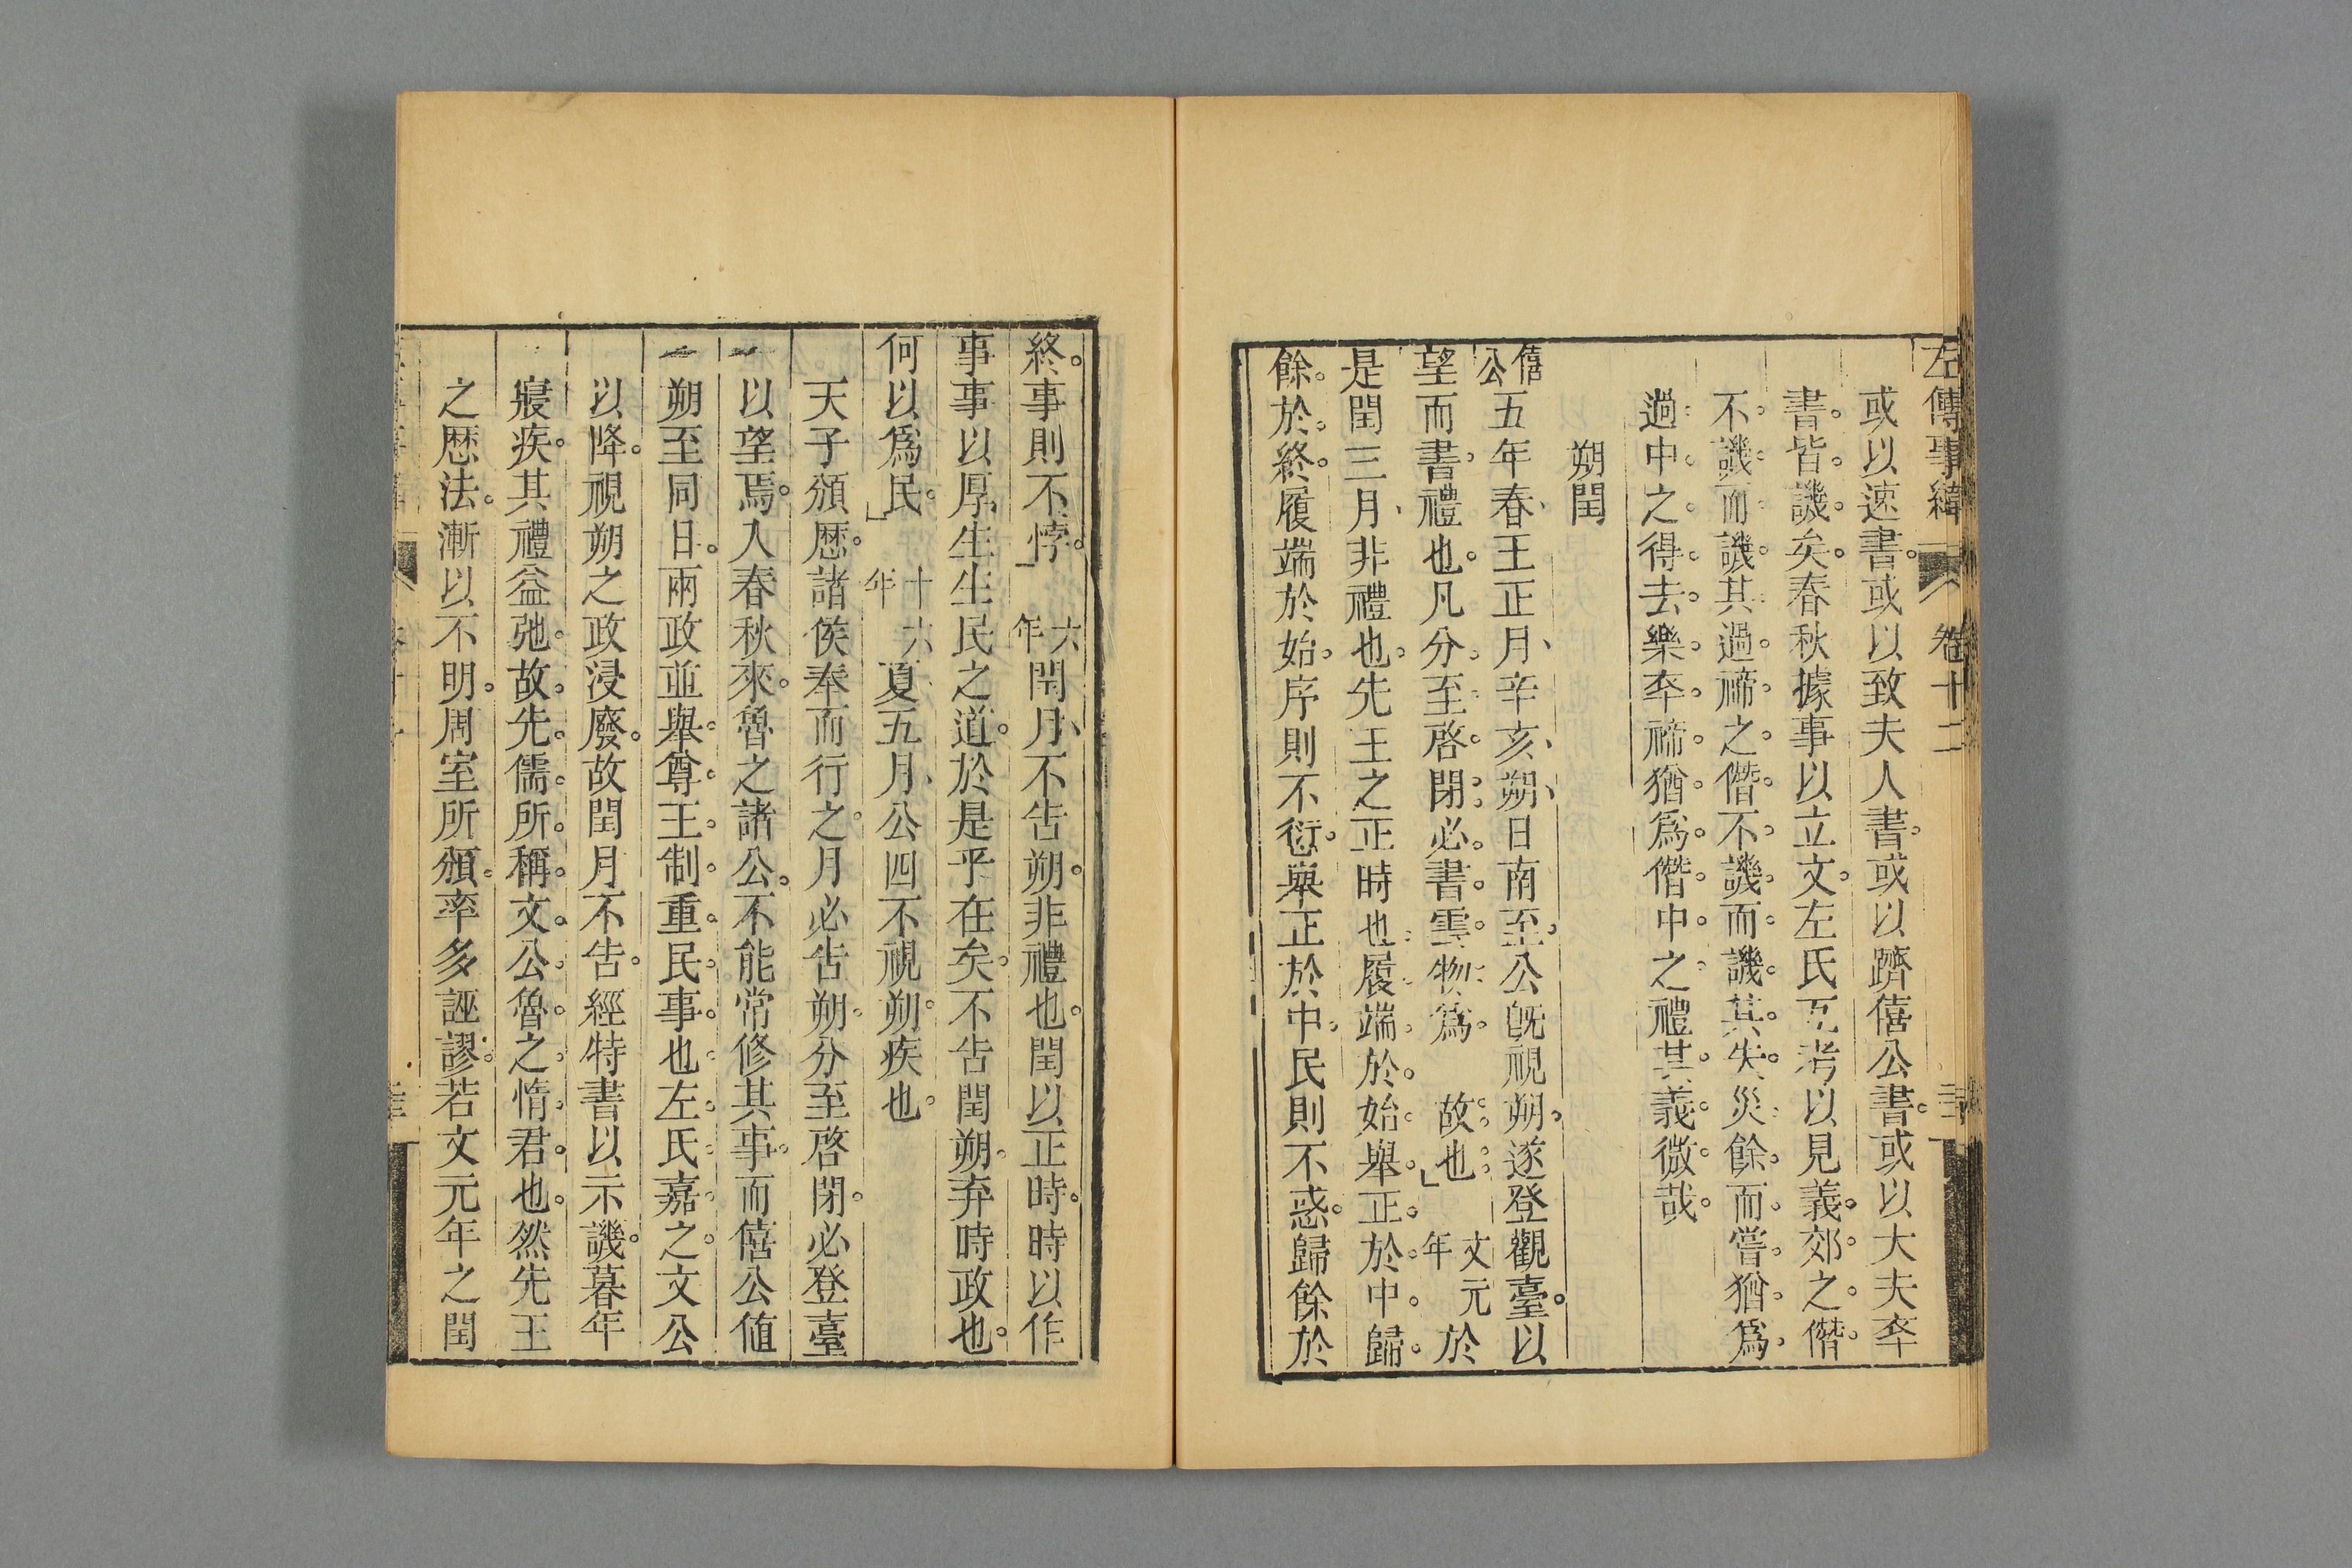 左傳事緯 卷十二
或以速書或以致夫人書或以躋僖公書或以大夫卒
書皆譏矣春秋據事以立文左氏互考以見義郊之僭
不譏而譏其過禘之僭不譏而譏其失災餘而嘗猶爲
過中之得去樂卒禘猶爲僭中之禮其義微哉
朔閏
僖公五年春王正月辛亥朔日南至公旣視朔遂登觀臺以
望而書禮也凡分至啓閉必書雲物爲故也 文元年 於
是閏三月非禮也先王之正時也履端於始舉正於中歸
餘於終履端於始序則不愆舉正於中民則不惑歸餘於
終事則不悖 六年 閏月不告朔非禮也閏以正時時以作
事事以厚生生民之道於是乎在矣不告閏朔弃時政也
何以爲民 十六年 夏五月公四不視朔疾也
天子頒厯諸侯奉而行之月必告朔分至啓閉必登臺
以望焉入春秋來魯之諸公不能常修其事而僖公値
朔至同日兩政並舉尊王制重民事也左氏嘉之文公
以降視朔之政浸廢故閏月不告經特書以示譏暮年
寢疾其禮益弛故先儒所稱文公魯之惰君也然先王
之厯法漸以不明周室所頒率多誣謬若文元年之閏